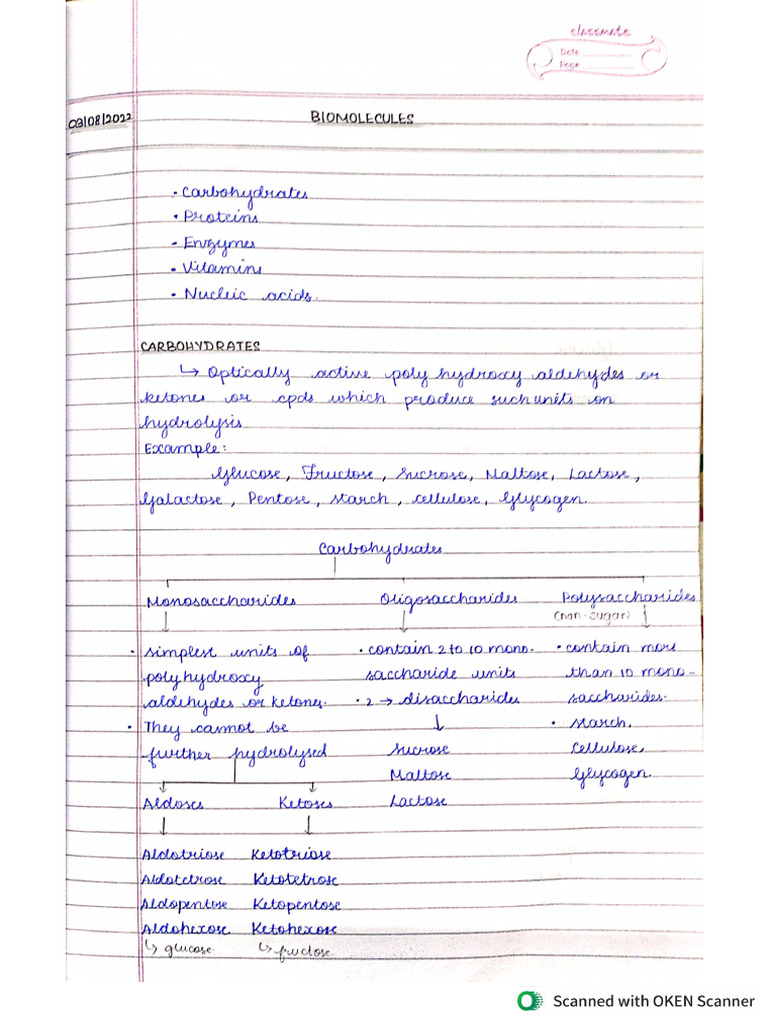 classmate
Date
Page
03/08/2022
BIOMOLECULES
• Carbohydrates
• Proteins
• Enzymes
• Vitamins
• Nucleic acids.
CARBOHYDRATES
↳ Optically active poly hydroxy aldehydes or
ketones or cpds which produce such units on
hydrolysis
Example:
Glucose, Fructose, Sucrose, Maltose, Lactose,
Galactose, Pentose, starch, cellulose, Glycogen.
Carbohydrates
Monosaccharides Oligosaccharides Polysaccharides
(non-sugar)
• simplest units of
polyhydroxy
aldehydes or ketones.
• They cannot be
further hydrolysed
• contain 2 to 10 mono.
saccharide units
• 2 → disaccharides
Sucrose
Maltose
Lactose
• contain more
than 10 mono-
saccharides.
• starch,
Cellulose,
Glycogen.
Aldoses Ketoses
Aldotriose Ketotriose
Aldotetrose Ketotetrose
Aldopentose Ketopentose
Aldohexose Ketohexose
↳ glucose ↳ fructose
Scanned with OKEN Scanner